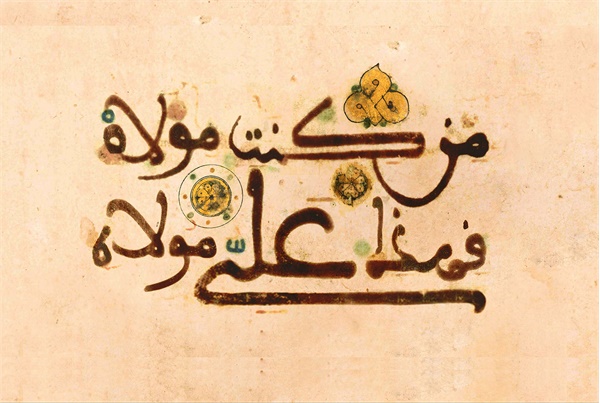 من كنت مولاه
فهذا عليّ مولاه